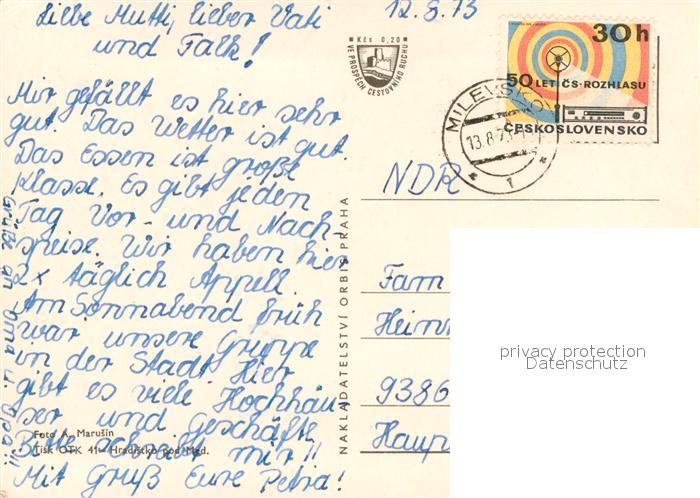 12.8.73
Liebe Mutti, lieber Vati
und Falk!
Mir gefällt es hier sehr
gut. Das Wetter ist gut.
Das Essen ist große
Klasse. Es gibt jeden
Tag Vor- und Nach-
speise. Wir haben hier
2x täglich Appell.
Am Sonnabend früh
war unsere Gruppe
in der Stadt. Hier
gibt es viele Hochhäu-
ser und Geschäfte.
Bitte schreibt mir!!
Mit Gruß Eure Petra!
Grüße an Oma u. Opa!!
Foto A. Marušin
Tisk OTK 41 - Hradištko pod Med.
Kčs 0,20
VE PROSPĚCH CESTOVNÍHO RUCHU
NAKLADATELSTVÍ ORBIS PRAHA
30h
50 LET ČS. ROZHLASU
ČESKOSLOVENSKO
MILEVSKO
13.8.73
1
NDR
Fam
Hein
9386
Haup
privacy protection
Datenschutz